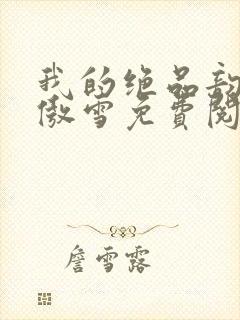 我的绝品
傲雪免费阅
詹雪露